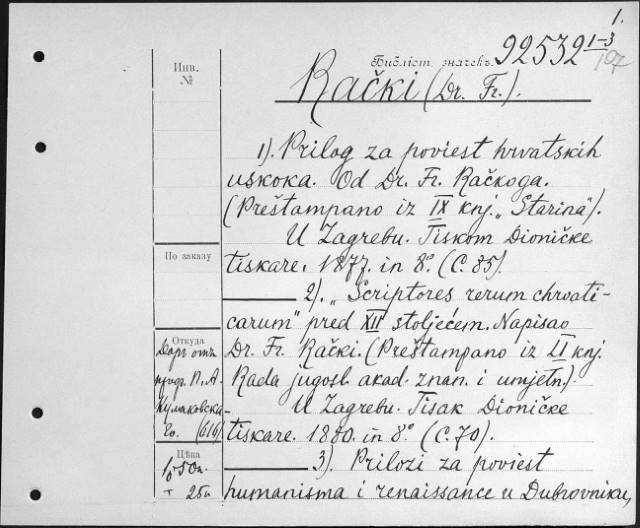 1.
Библіот. значекъ. 92532 1-3
107
Инв.
№
Rački (Dr. Fr.).
1). Prilog za poviest hrvatskih
uskoka. Od Dr. Fr. Račkoga.
(Preštampano iz IX knj. „Starina").
U Zagrebu. Tiskom Dioničke
tiskare. 1877. in 8° (C. 85).
По заказу
2). „Scriptores rerum chroati-
carum" pred XII stoljećem. Napisao
Dr. Fr. Rački. (Preštampano iz LI knj.
Rada jugosl. akad. znan. i umjetn.).
U Zagrebu. Tisak Dioničke
tiskare. 1880. in 8° (C. 70).
Откуда
Даръ отъ
проф. П. А.
Кулаковска-
го. (616)
Цѣна
3). Prilozi za poviest
humanisma i renaissance u Dubrovniku,